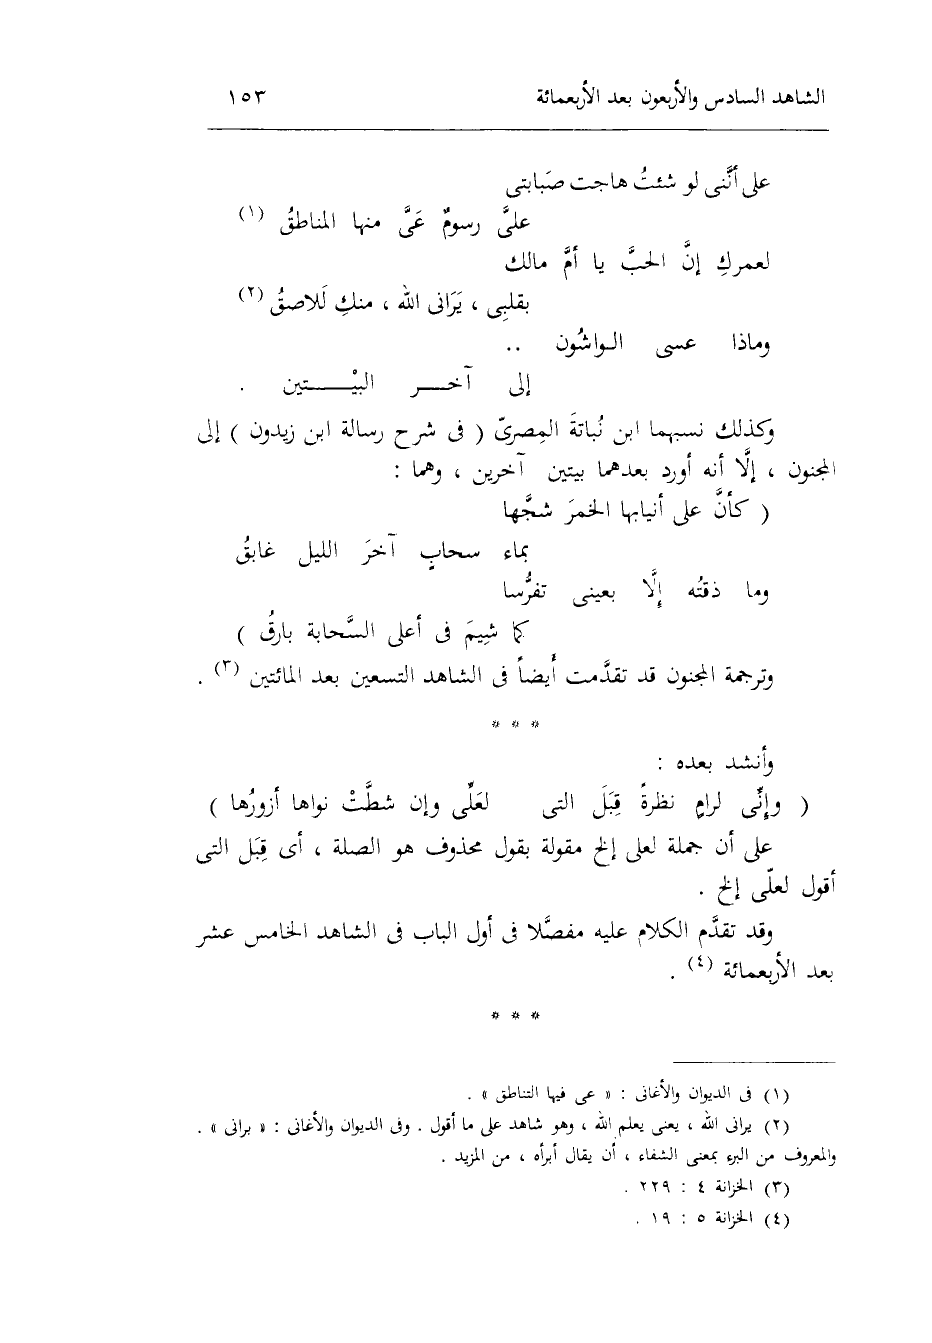 الشاهد السادس والأربعون بعد الأربعمائة ١٥٣
على أنَّنى لو شئتُ هاجت صَبابتى
علىَّ رسومٌ عَىَّ منها المناطقُ (١)
لعمركِ إنَّ الحبَّ يا أمَّ مالك
بقلبِى ، يَرَانى الله ، منكِ لَلاصقُ (٢)
وماذا عسى الواشُون ..
إلى آخر البيْتين .
وكذلك نسبهما ابن نُباتةَ المِصرىّ ( فى شرح رسالة ابن زيدون ) إلى
المجنون ، إلَّا أنه أورد بعدهما بيتين آخرين ، وهما :
( كأنَّ على أنيابها الخمرَ شجَّها
بماء سحابٍ آخرَ الليل غابقُ
وما ذقتُه إلَّا بعينى تفرُّسا
كما شِيمَ فى أعلى السَّحابة بارقُ )
وترجمة المجنون قد تقدَّمت أيضاً فى الشاهد التسعين بعد المائتين (٣) .
* * *
وأنشد بعده :
( وإنِّى لرامٍ نظرةً قِبَلَ التى لعَلِّى وإن شطَّتْ نواها أزورُها )
على أن جملة لعلى إلخ مقولة بقول محذوف هو الصلة ، أى قِبَل التى
أقول لعلّى إلخ .
وقد تقدَّم الكلام عليه مفصَّلا فى أول الباب فى الشاهد الخامس عشر
بعد الأربعمائة (٤) .
* * *
(١) فى الديوان والأغانى : « عى فيها التناطق » .
(٢) يرانى الله ، يعنى يعلم الله ، وهو شاهد على ما أقول . وفى الديوان والأغانى : « برانى » .
والمعروف من البرء بمعنى الشفاء ، أن يقال أبرأه ، من المزيد .
(٣) الخزانة ٤ : ٢٢٩ .
(٤) الخزانة ٥ : ١٩ .